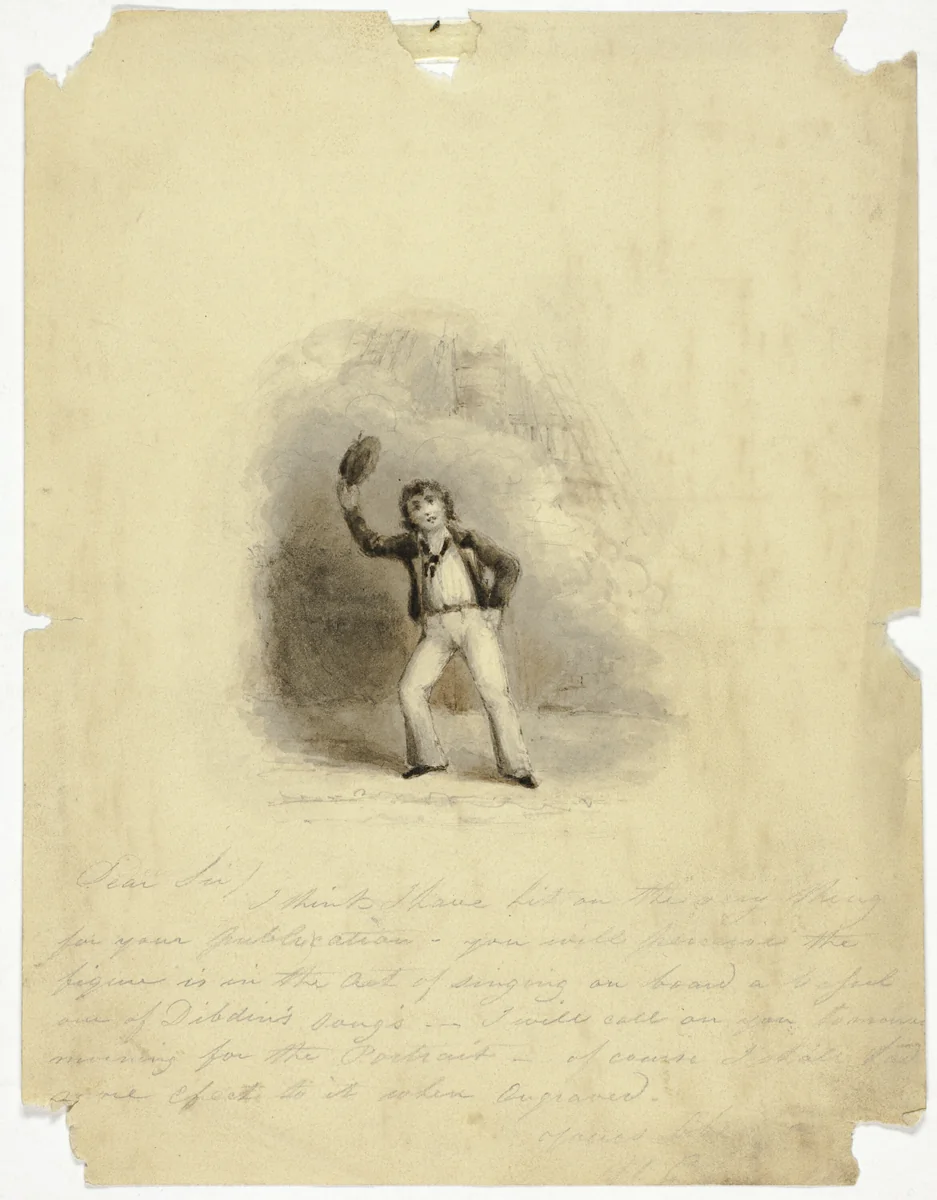 Dear Sir/
I think I have hit on the very thing
for your publication - you will perceive the
figure is in the act of singing on board a
one of Dibdin's songs — I will call on you
morning for the Portrait — of course I shall
more effect to it when Engraved.
yours